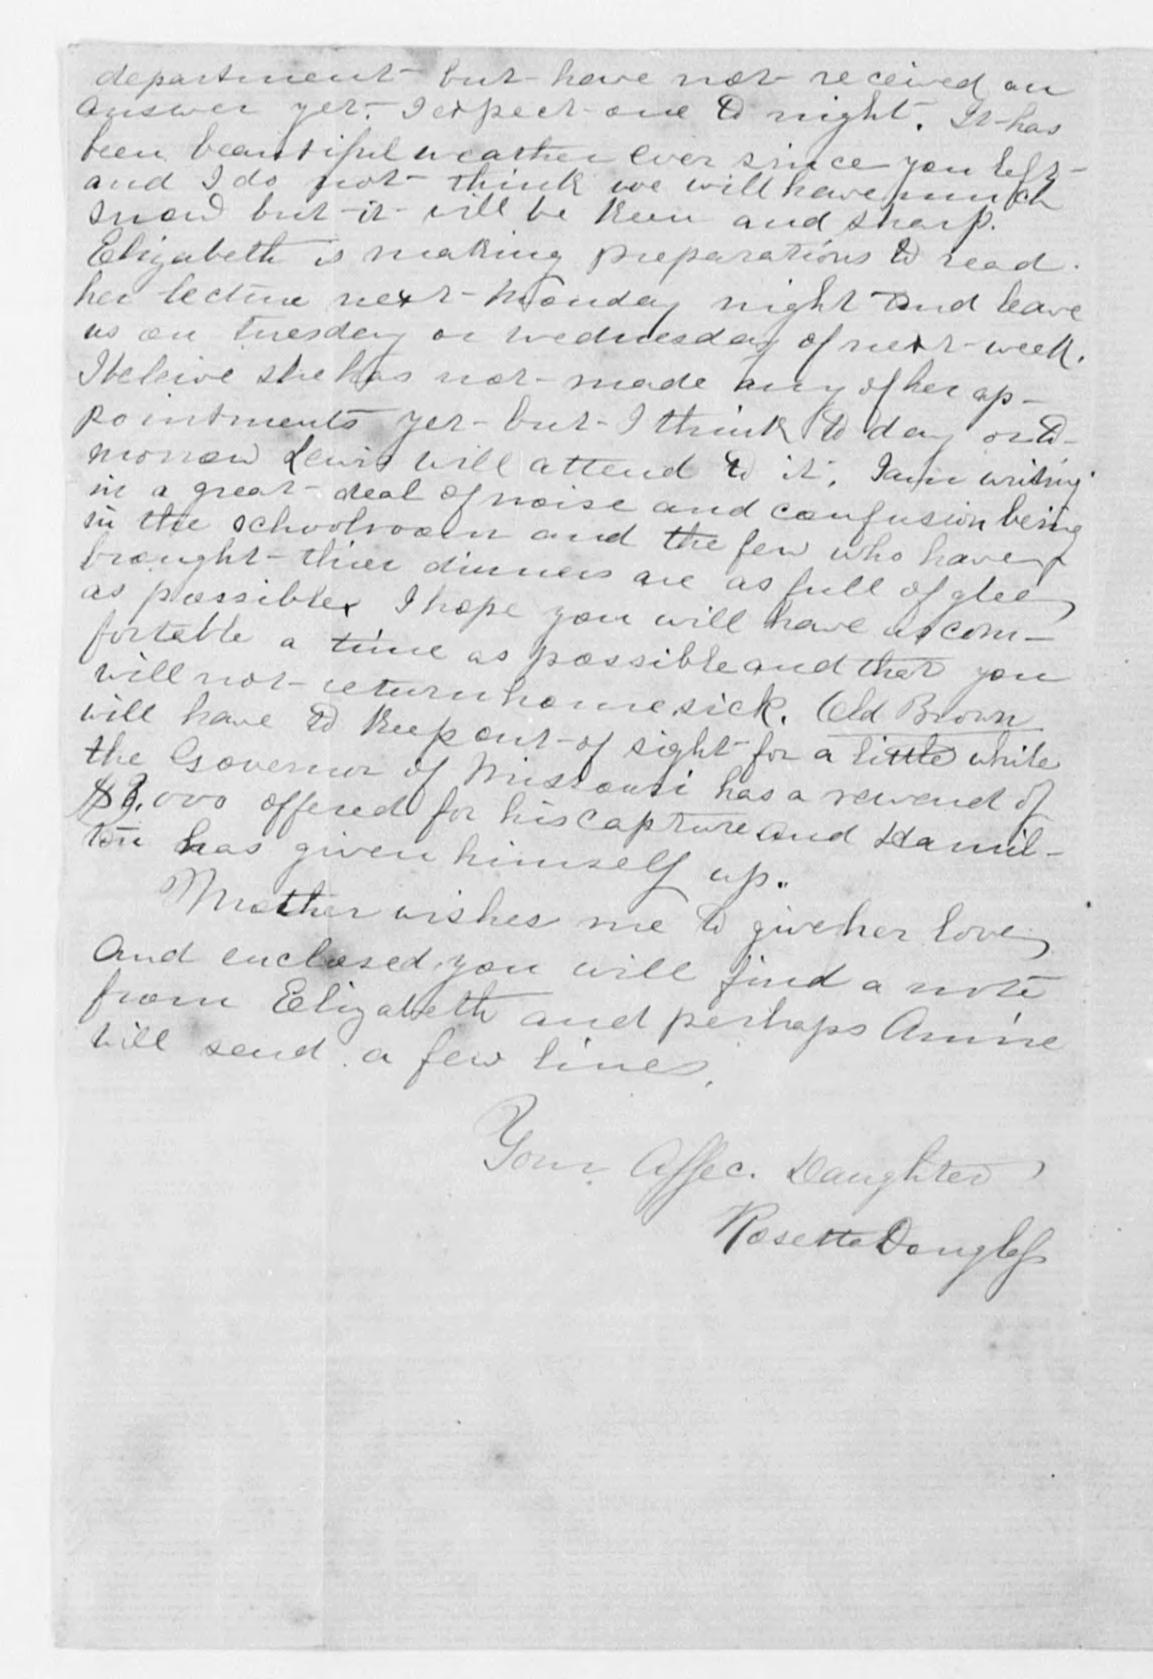 department but have not received an
answer yet. I expect one to night. It has
been beautiful weather ever since you left
and I do not think we will have much
snow but it will be keen and sharp.
Elizabeth is making preparations to read
her lecture next Monday night and leave
us on Tuesday or Wednesday of next week.
I beleive she has not made any of her ap-
pointments yet but I think to day or to-
morrow Lewis will attend to it. I am writing
in a great deal of noise and confusion being
in the schoolroom and the few who have
brought thier dinners are as full of glee
as possible. I hope you will have as com-
fortable a time as possible and that you
will not return home sick. Old Brown
will have to keep out of sight for a little while
the Governor of Missouri has a reward of
$3,000 offered for his capture and Hamil-
ton has given himself up.
Mother wishes me to give her love
and enclosed you will find a note
from Elizabeth and perhaps Annie
will send a few lines.
Your Affec. Daughter
Rosetta Douglass